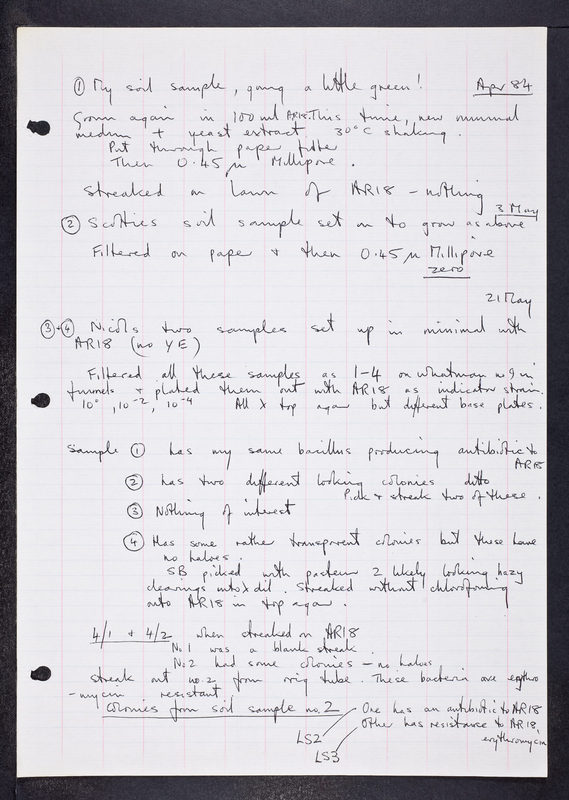 ① My soil sample, going a little green! Apr 84
Grown again in 100 ml AR18. This time, new minimal
medium + yeast extract. 30°C shaking.
Put through paper filter
Then 0.45 µ Millipore.
Streaked on lawn of AR18 - nothing
3 May
② Scotties soil sample set on to grow as above
Filtered on paper & then 0.45 µ Millipore
zero
21 May
③+④ Nicols two samples set up in minimal with
AR18 (no YE)
Filtered all these samples as 1-4 on whatman no 9 in
funnels & plated them out with AR18 as indicator strain.
10°, 10-2, 10-4 All λ top agar but different base plates.
Sample ① has my same bacillus producing antibiotic to
AR18
② has two different looking colonies ditto
Pick & streak two of these.
③ Nothing of interest
④ Has some rather transparent colonies but these have
no haloes.
SB picked with pasteur 2 likely looking hazy
clearings into λ dil. Streaked without chloroforming
onto AR18 in top agar.
4/1 + 4/2 when streaked on AR18
No. 1 was a blank streak.
No. 2 had some colonies - no halos
streak out no. 2 from orig tube. These bacteria are erythro
-mycin resistant
Colonies from soil sample no. 2
One has an antibiotic to AR18
Other has resistance to AR18,
erythromycin
LS2
LS3